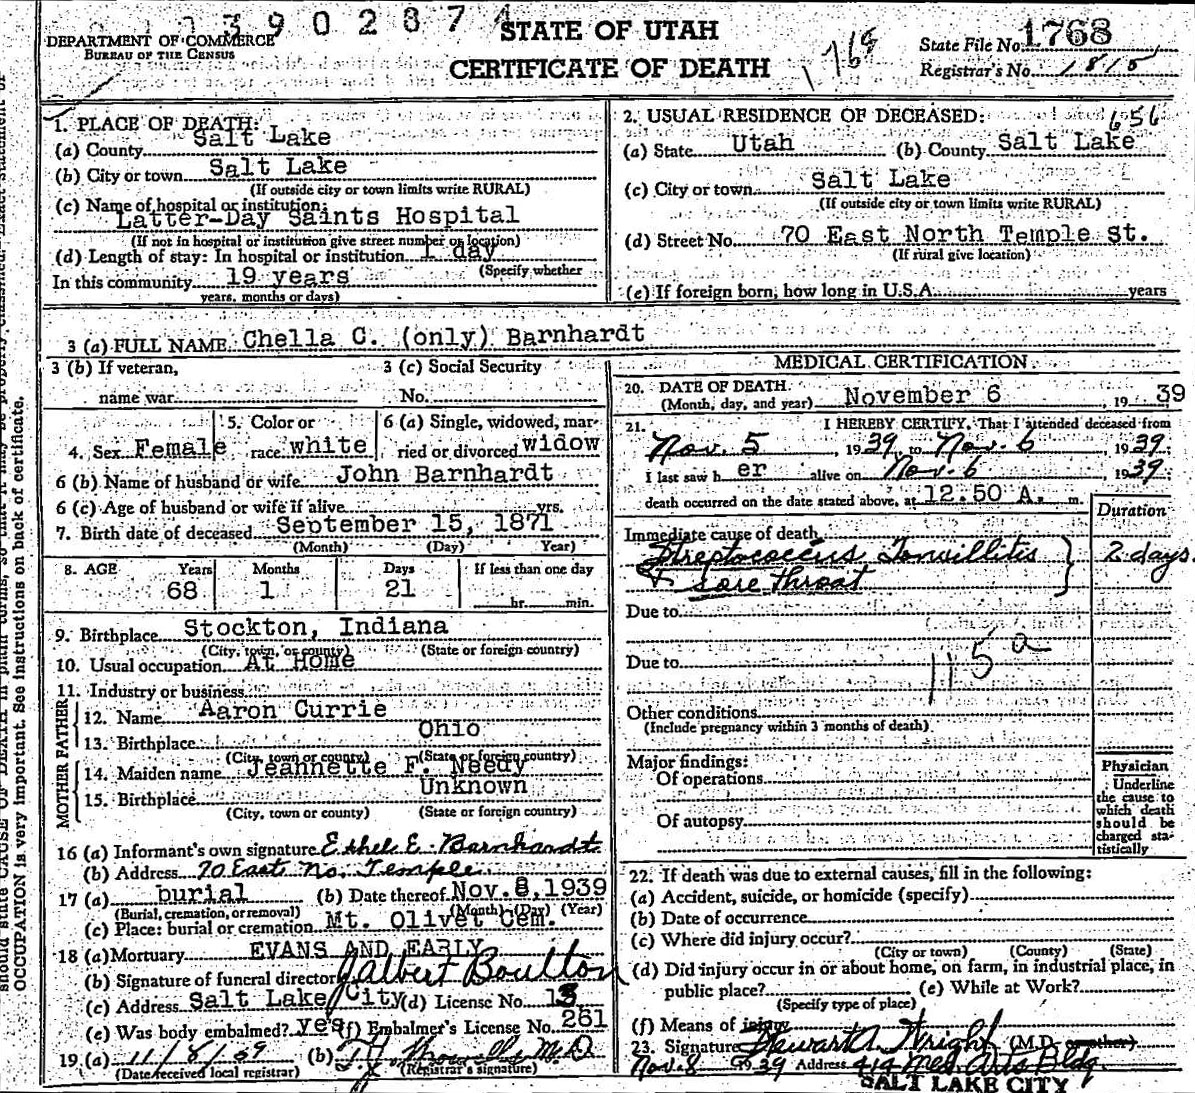 13902874
STATE OF UTAH
CERTIFICATE OF DEATH
DEPARTMENT OF COMMERCE
BUREAU OF THE CENSUS
1768
State File No. 1768
Registrar's No. 1815
1. PLACE OF DEATH:
(a) County Salt Lake
(b) City or town Salt Lake
(If outside city or town limits write RURAL)
(c) Name of hospital or institution:
Latter-Day Saints Hospital
(If not in hospital or institution give street number or location)
(d) Length of stay: In hospital or institution 1 day
(Specify whether
In this community 19 years
years, months or days)
2. USUAL RESIDENCE OF DECEASED: 656
(a) State Utah (b) County Salt Lake
(c) City or town Salt Lake
(If outside city or town limits write RURAL)
(d) Street No. 70 East North Temple St.
(If rural give location)
(e) If foreign born, how long in U.S.A. years
3 (a) FULL NAME Chella C. (only) Barnhardt
3 (b) If veteran, 3 (c) Social Security
name war No.
4. Sex Female 5. Color or race white 6 (a) Single, widowed, married or divorced widow
6 (b) Name of husband or wife John Barnhardt
6 (c) Age of husband or wife if alive yrs.
7. Birth date of deceased September 15, 1871
(Month) (Day) Year)
8. AGE Years Months Days If less than one day
68 1 21 hr. min.
9. Birthplace Stockton, Indiana
(City, town, or county) (State or foreign country)
10. Usual occupation At Home
11. Industry or business
FATHER
12. Name Aaron Currie
13. Birthplace Ohio
(City, town or county) (State or foreign country)
MOTHER
14. Maiden name Jeannette F. Needy
15. Birthplace Unknown
(City, town or county) (State or foreign country)
16 (a) Informant's own signature Ethel E. Barnhardt
(b) Address 70 East No. Temple
17 (a) burial (b) Date thereof Nov. 8, 1939
(Burial, cremation, or removal) (Month) (Day) (Year)
(c) Place: burial or cremation Mt. Olivet Cem.
18 (a) Mortuary EVANS AND EARLY
(b) Signature of funeral director Albert Boulton
(c) Address Salt Lake City (d) License No. 13
(e) Was body embalmed? yes (f) Embalmer's License No. 261
19 (a) 11/8/39 (b) M.D.
(Date received local registrar) (Registrar's signature)
MEDICAL CERTIFICATION
20. DATE OF DEATH
(Month, day, and year) November 6, 1939
21. I HEREBY CERTIFY, That I attended deceased from
Nov. 5, 1939, to Nov. 6, 1939.
I last saw her alive on Nov. 6 1939;
death occurred on the date stated above, at 12:50 A. m.
Duration
Immediate cause of death
Streptococcus Tonsillitis 2 days.
& sore throat
Due to
115a
Due to
Other conditions
(Include pregnancy within 3 months of death)
Major findings:
Of operations
Of autopsy
Physician
Underline
the cause to
which death
should be
charged sta-
tistically
22. If death was due to external causes, fill in the following:
(a) Accident, suicide, or homicide (specify)
(b) Date of occurrence
(c) Where did injury occur?
(City or town) (County) (State)
(d) Did injury occur in or about home, on farm, in industrial place, in
public place? (e) While at Work?
(Specify type of place)
(f) Means of injury
23. Signature Wright (M.D. or other)
Nov. 8 1939 Address 414 Med. Arts Bldg.
SALT LAKE CITY
OCCUPATION is very important. See instructions on back of certificate.